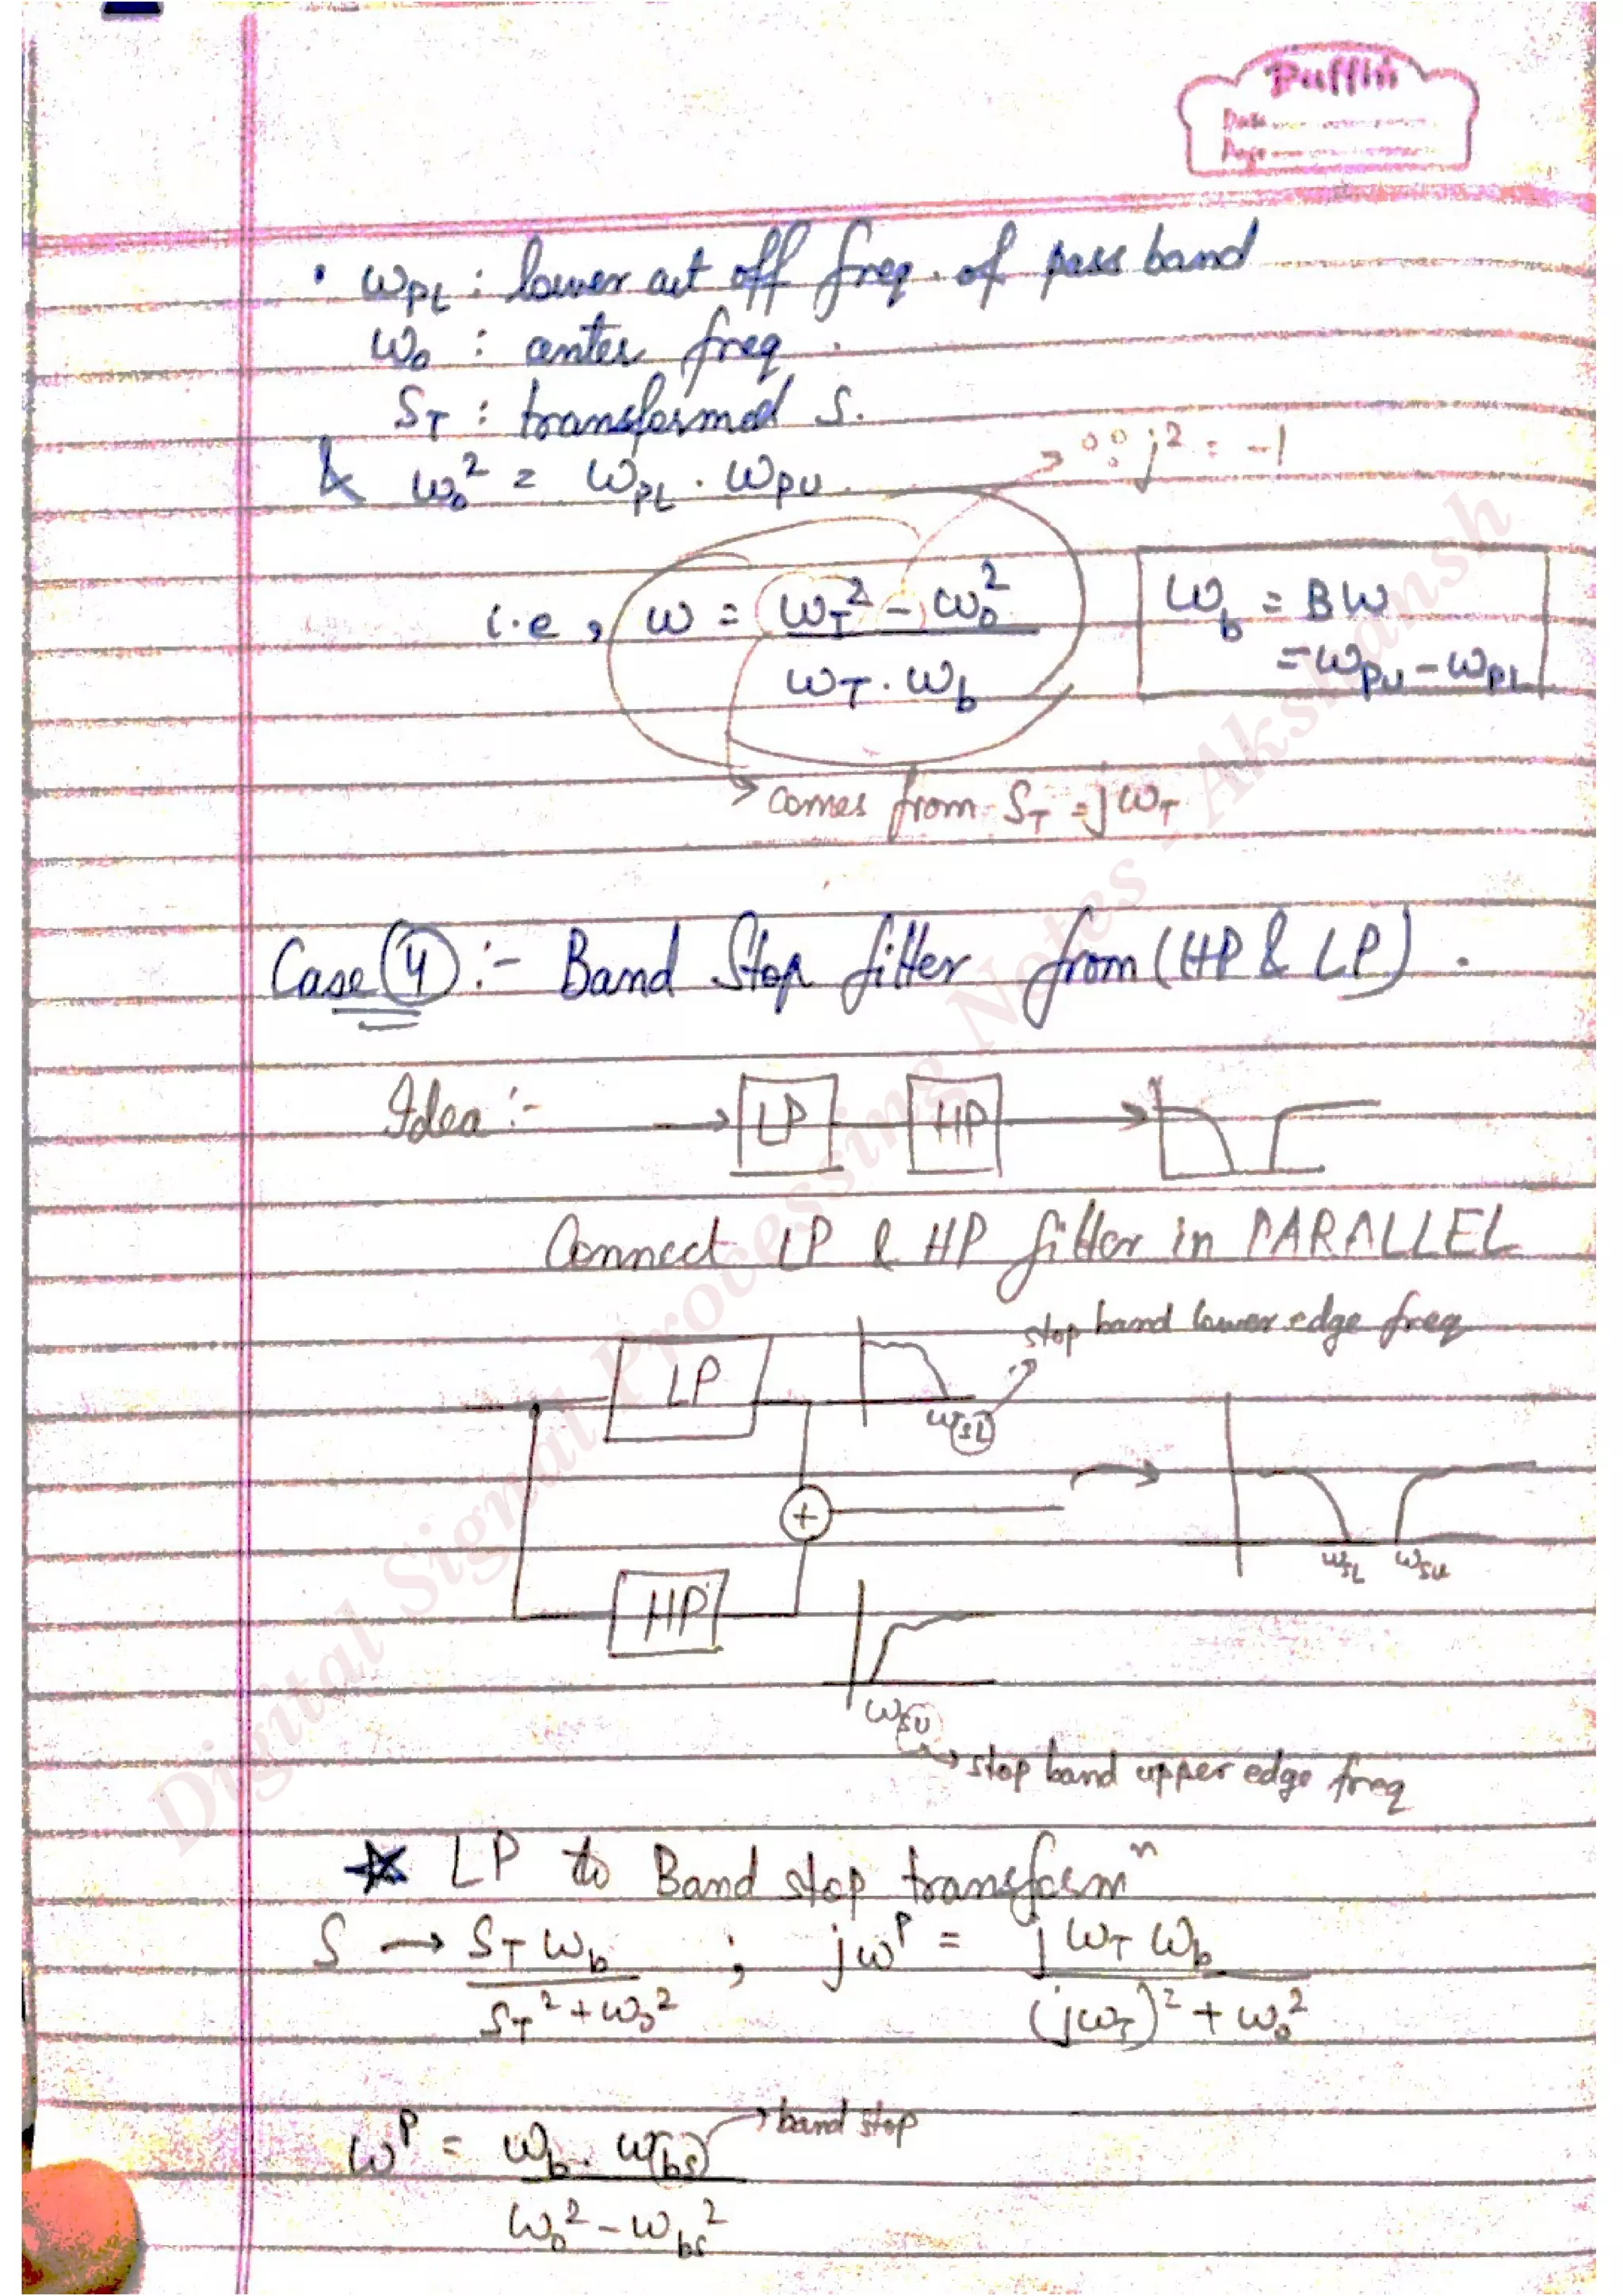 Puffin
Date
Page
• ω_PL : lower cut off freq. of pass band
ω₀ : center freq.
S_T : transformed S.
& ω₀² = ω_PL . ω_PU
∵ j² = -1
i.e , ω = (ω_T² - ω₀²) / (ω_T . ω_b)
ω_b = BW
= ω_PU - ω_PL
comes from S_T = jω_T
Case (4) :- Band Stop filter from (HP & LP) .
Idea :- LP HP
Connect LP & HP filter in PARALLEL
stop band lower edge freq
LP
ω_SL
+
ω_SL ω_SU
HP
ω_SU
stop band upper edge freq
☆ LP to Band stop transformⁿ
S → S_T ω_b / (S_T² + ω₀²) ; jω^P = j ω_T ω_b / ((jω_T)² + ω₀²)
band stop
ω^P = ω_b . ω_(bs) / (ω₀² - ω_bs²)
Digital Signal Processing Notes - Akshansh